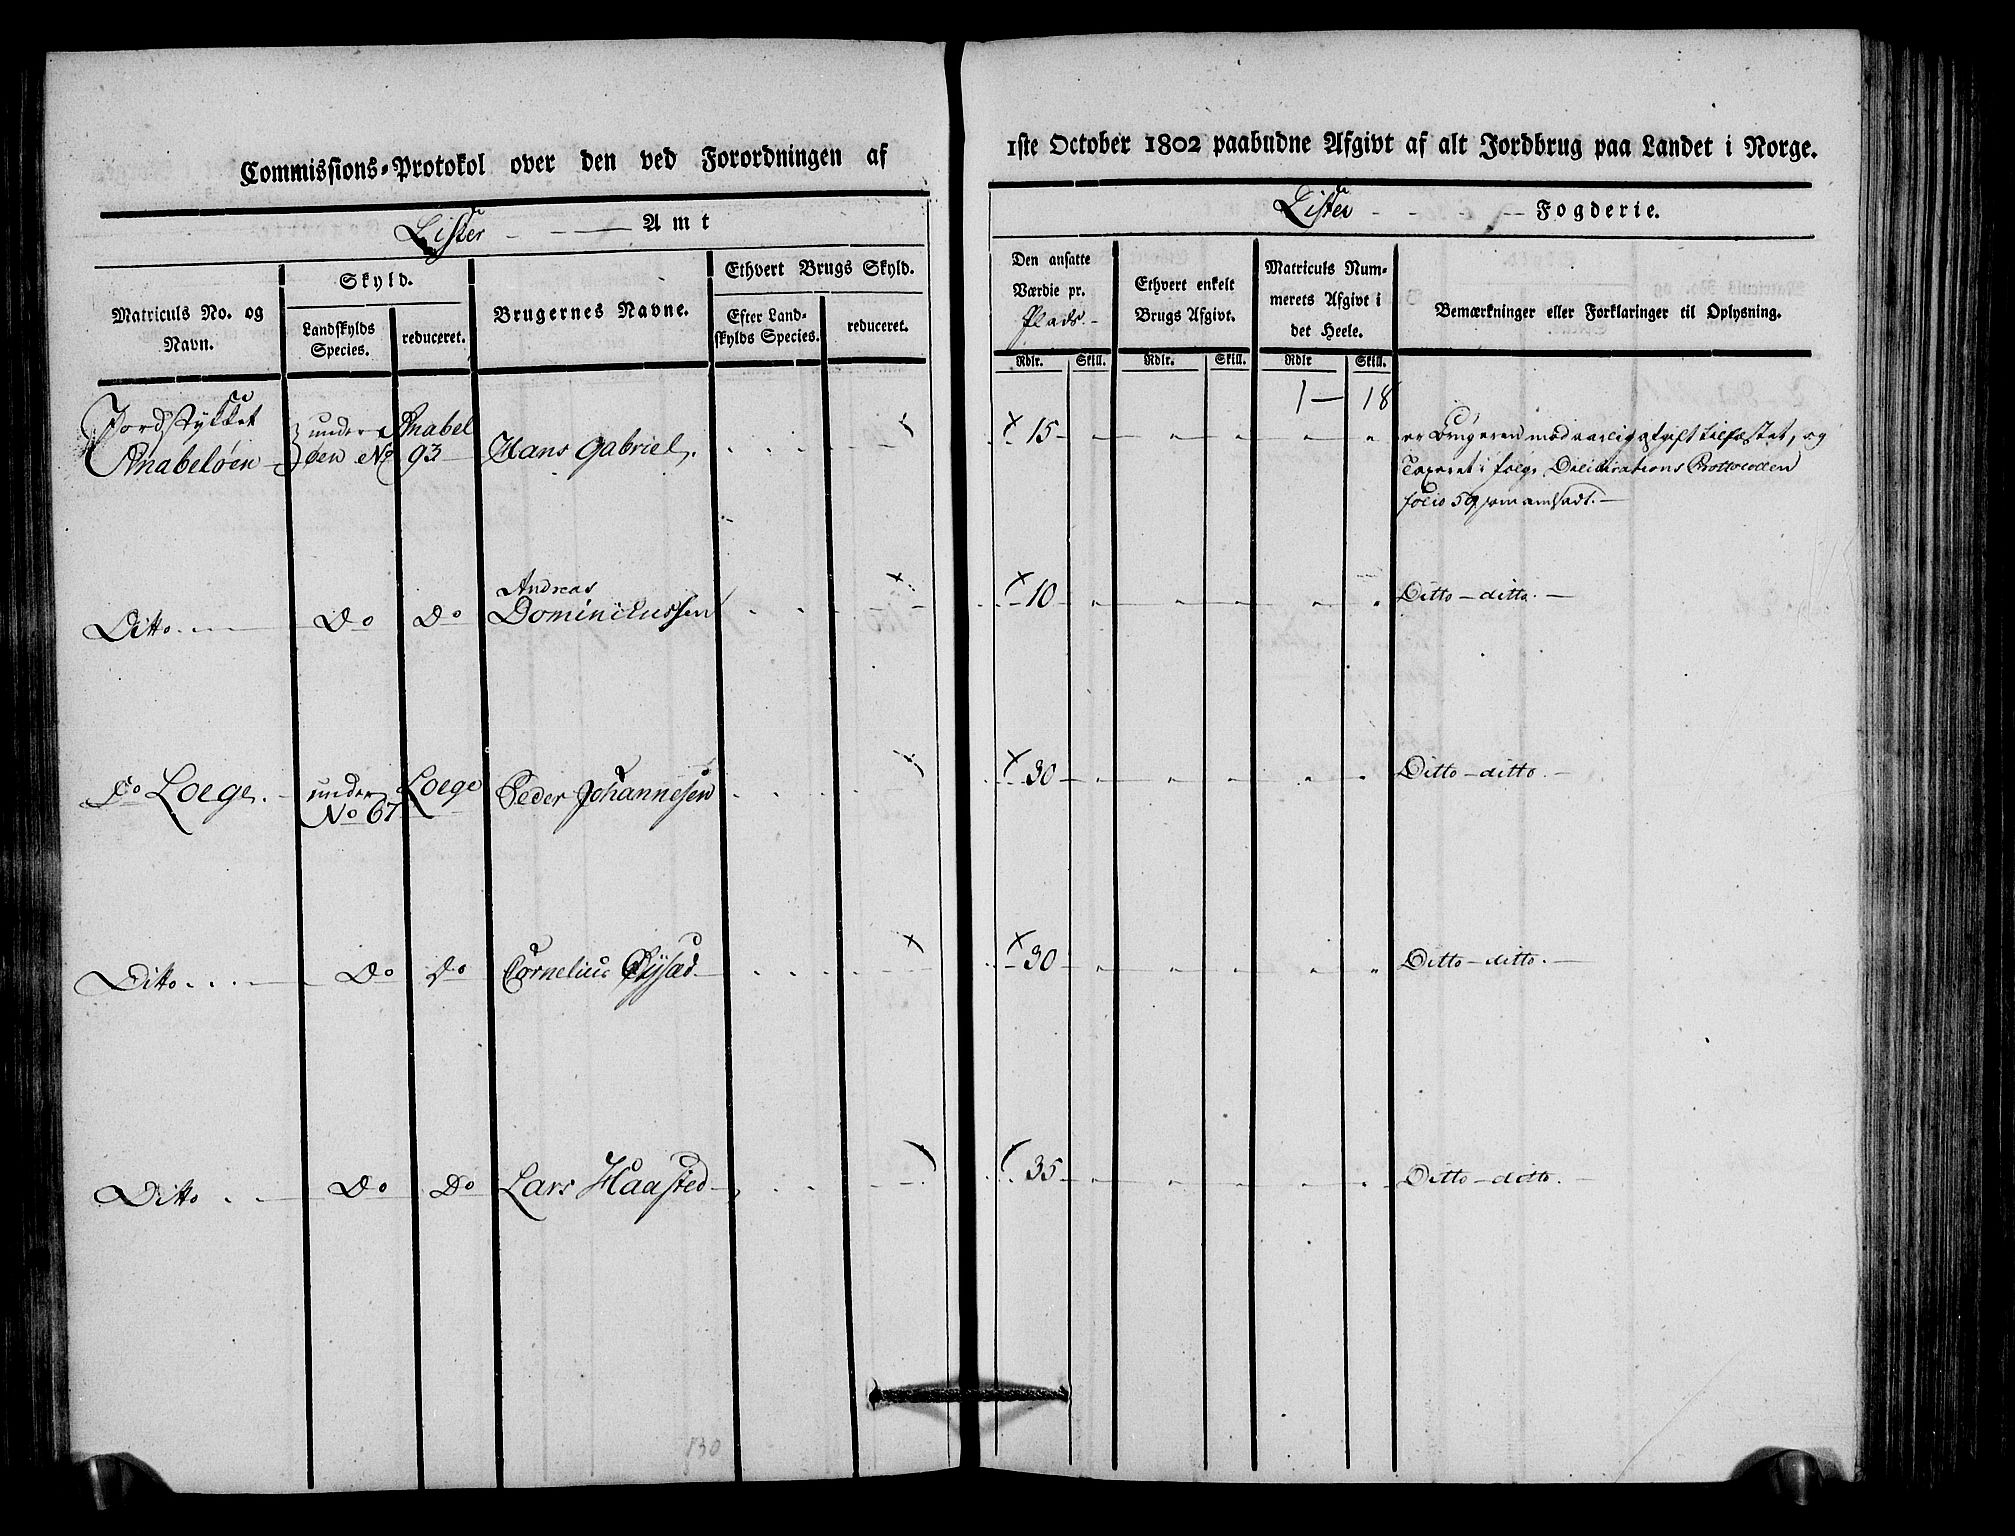 Commissions-Protokol over den ved Forordningen af
1ste October 1802 paabudne Afgivt af alt Jordbrug paa Landet i Norge.
Lister Amt
Lister Fogderie.
Matriculs No. og Navn.
Skyld.
Landskylds Species.
reduceret.
Brugernes Navne.
Ethvert Brugs Skyld.
Efter Land-
skylds Species.
reduceret.
Den ansatte
Værdie pr.
Plads.
Rdlr. Skill.
Ethvert enkelt
Brugs Afgivt.
Rdlr. Skill.
Matriculs Num-
merets Afgivt i
det Heele.
Rdlr Skill.
Bemærkninger eller Forklaringer til Oplysning.
1 — 18
Jordstykket under Anabel
Anabeløen øen No 93 Hans Gabriel. 15
er Brugeren mod aarlig afgift tilfæstet, og
Taxeret i følge Deliberations Protocollen
folio 59 som ansadt.
Andreas
Ditto Do Do Dominicussen 10 Ditto - ditto.
Do Loege. under Loege Peder Johannesen 30 Ditto - ditto.
No 67
Ditto Do Do Cornelius Øysæd 30 Ditto - ditto.
Ditto Do Do Lars Haasted 35 Ditto - ditto.
130